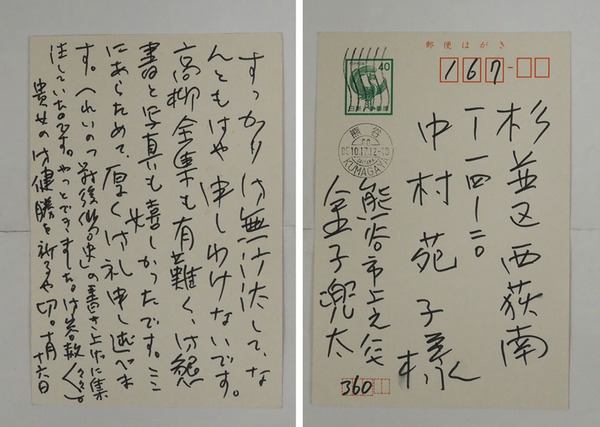 すっかり御無沙汰して、な
んともはや申しわけないです。
高柳全集も有難く、御懇
書と写真も嬉しかったです。ここ
にあらためて、厚く御礼申し述べま
す。へれいのつ戦後俳句史の書き上げに集
注していた。やっとできました。御笑殺く。
貴女の御健勝を祈るや切。十月
十六日
郵便はがき
167
40
日本郵便
熊谷
KUMAGAYA
杉並区西荻南
一ー一四ー二〇
中村苑子様
熊谷市上之
金子兜太
360